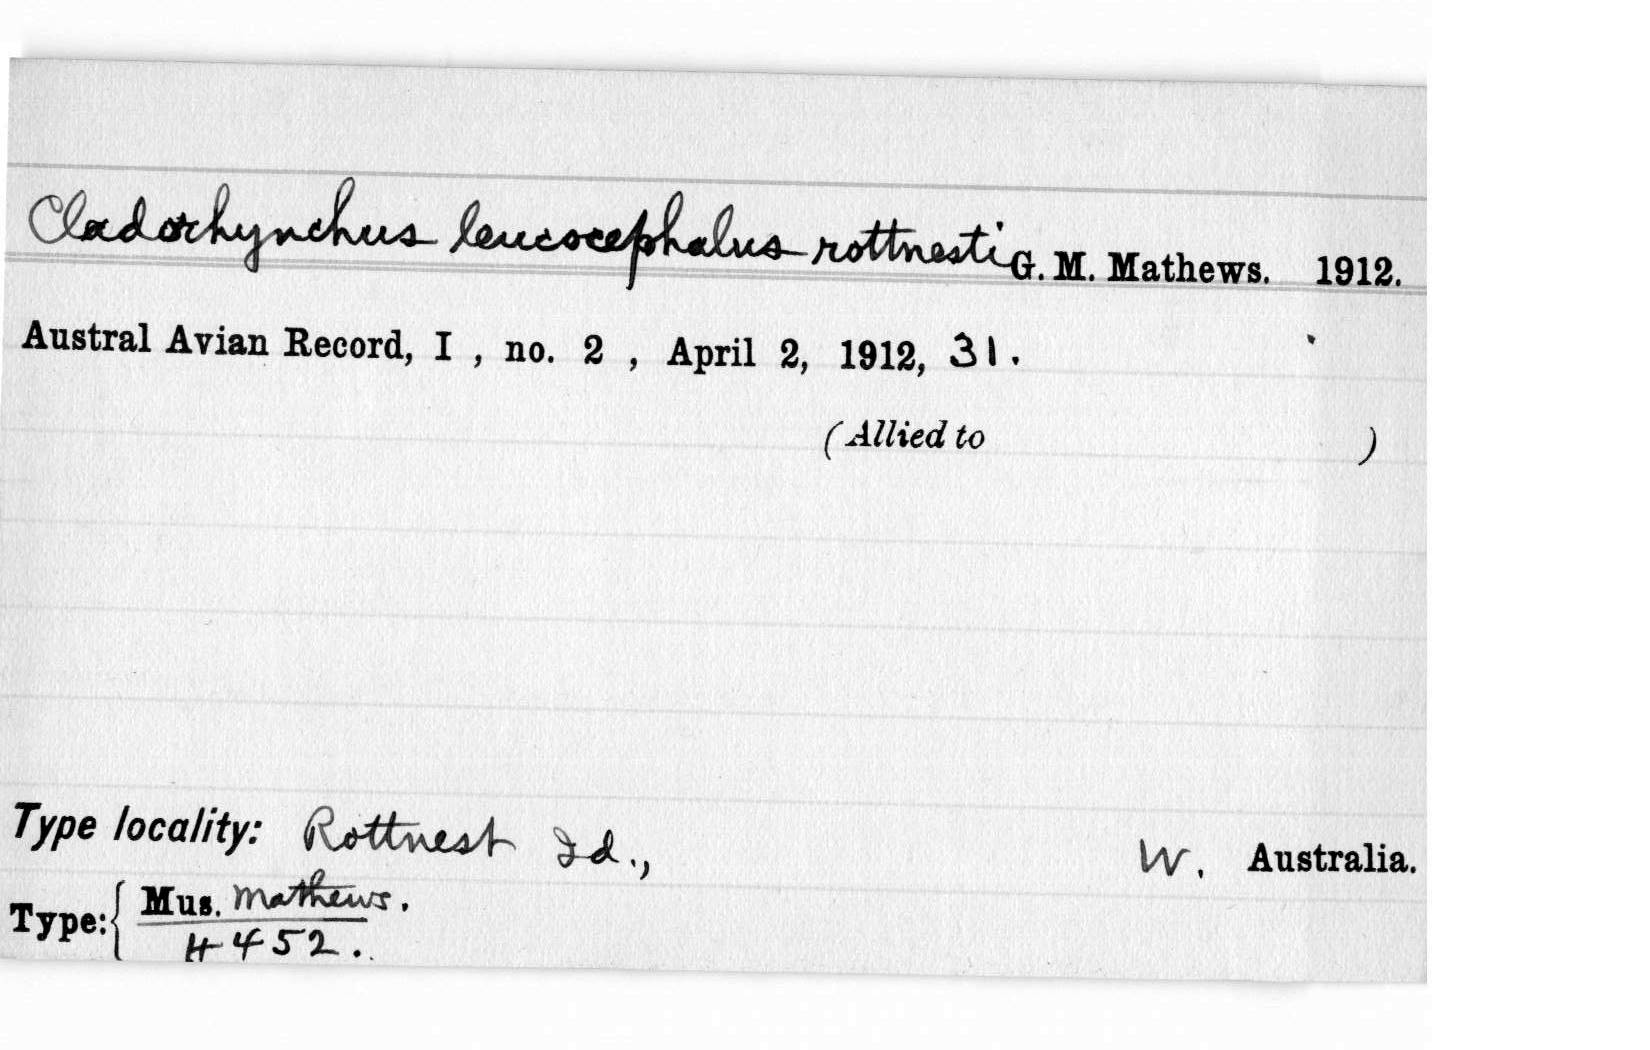 Cladorhynchus leucocephalus rottnesti G. M. Mathews. 1912.
Austral Avian Record, I , no. 2 , April 2, 1912, 31.
(Allied to )
Type locality: Rottnest Id., W. Australia.
Type: { Mus. Mathews.
4452.